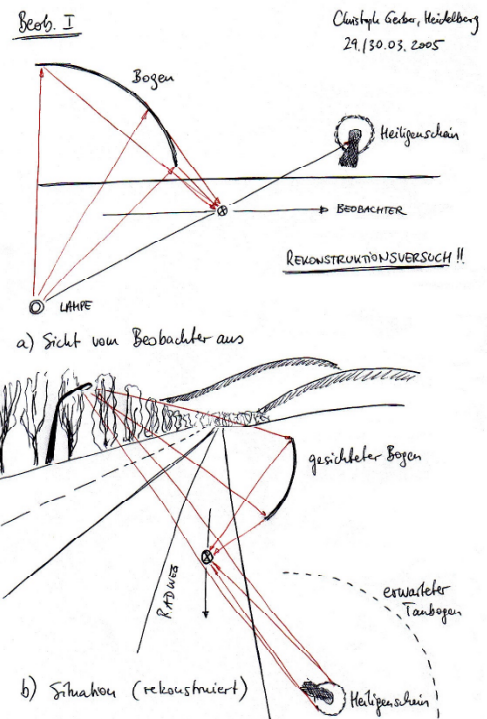 Beob. I
Christoph Gerber, Heidelberg
29./30.03.2005
Bogen
Heiligenschein
BEOBACHTER
REKONSTRUKTIONSVERSUCH!!
LAMPE
a) Sicht vom Beobachter aus
gesichteter Bogen
RADWEG
erwarteter
Taubogen
b) Situation (rekonstruiert)
Heiligenschein